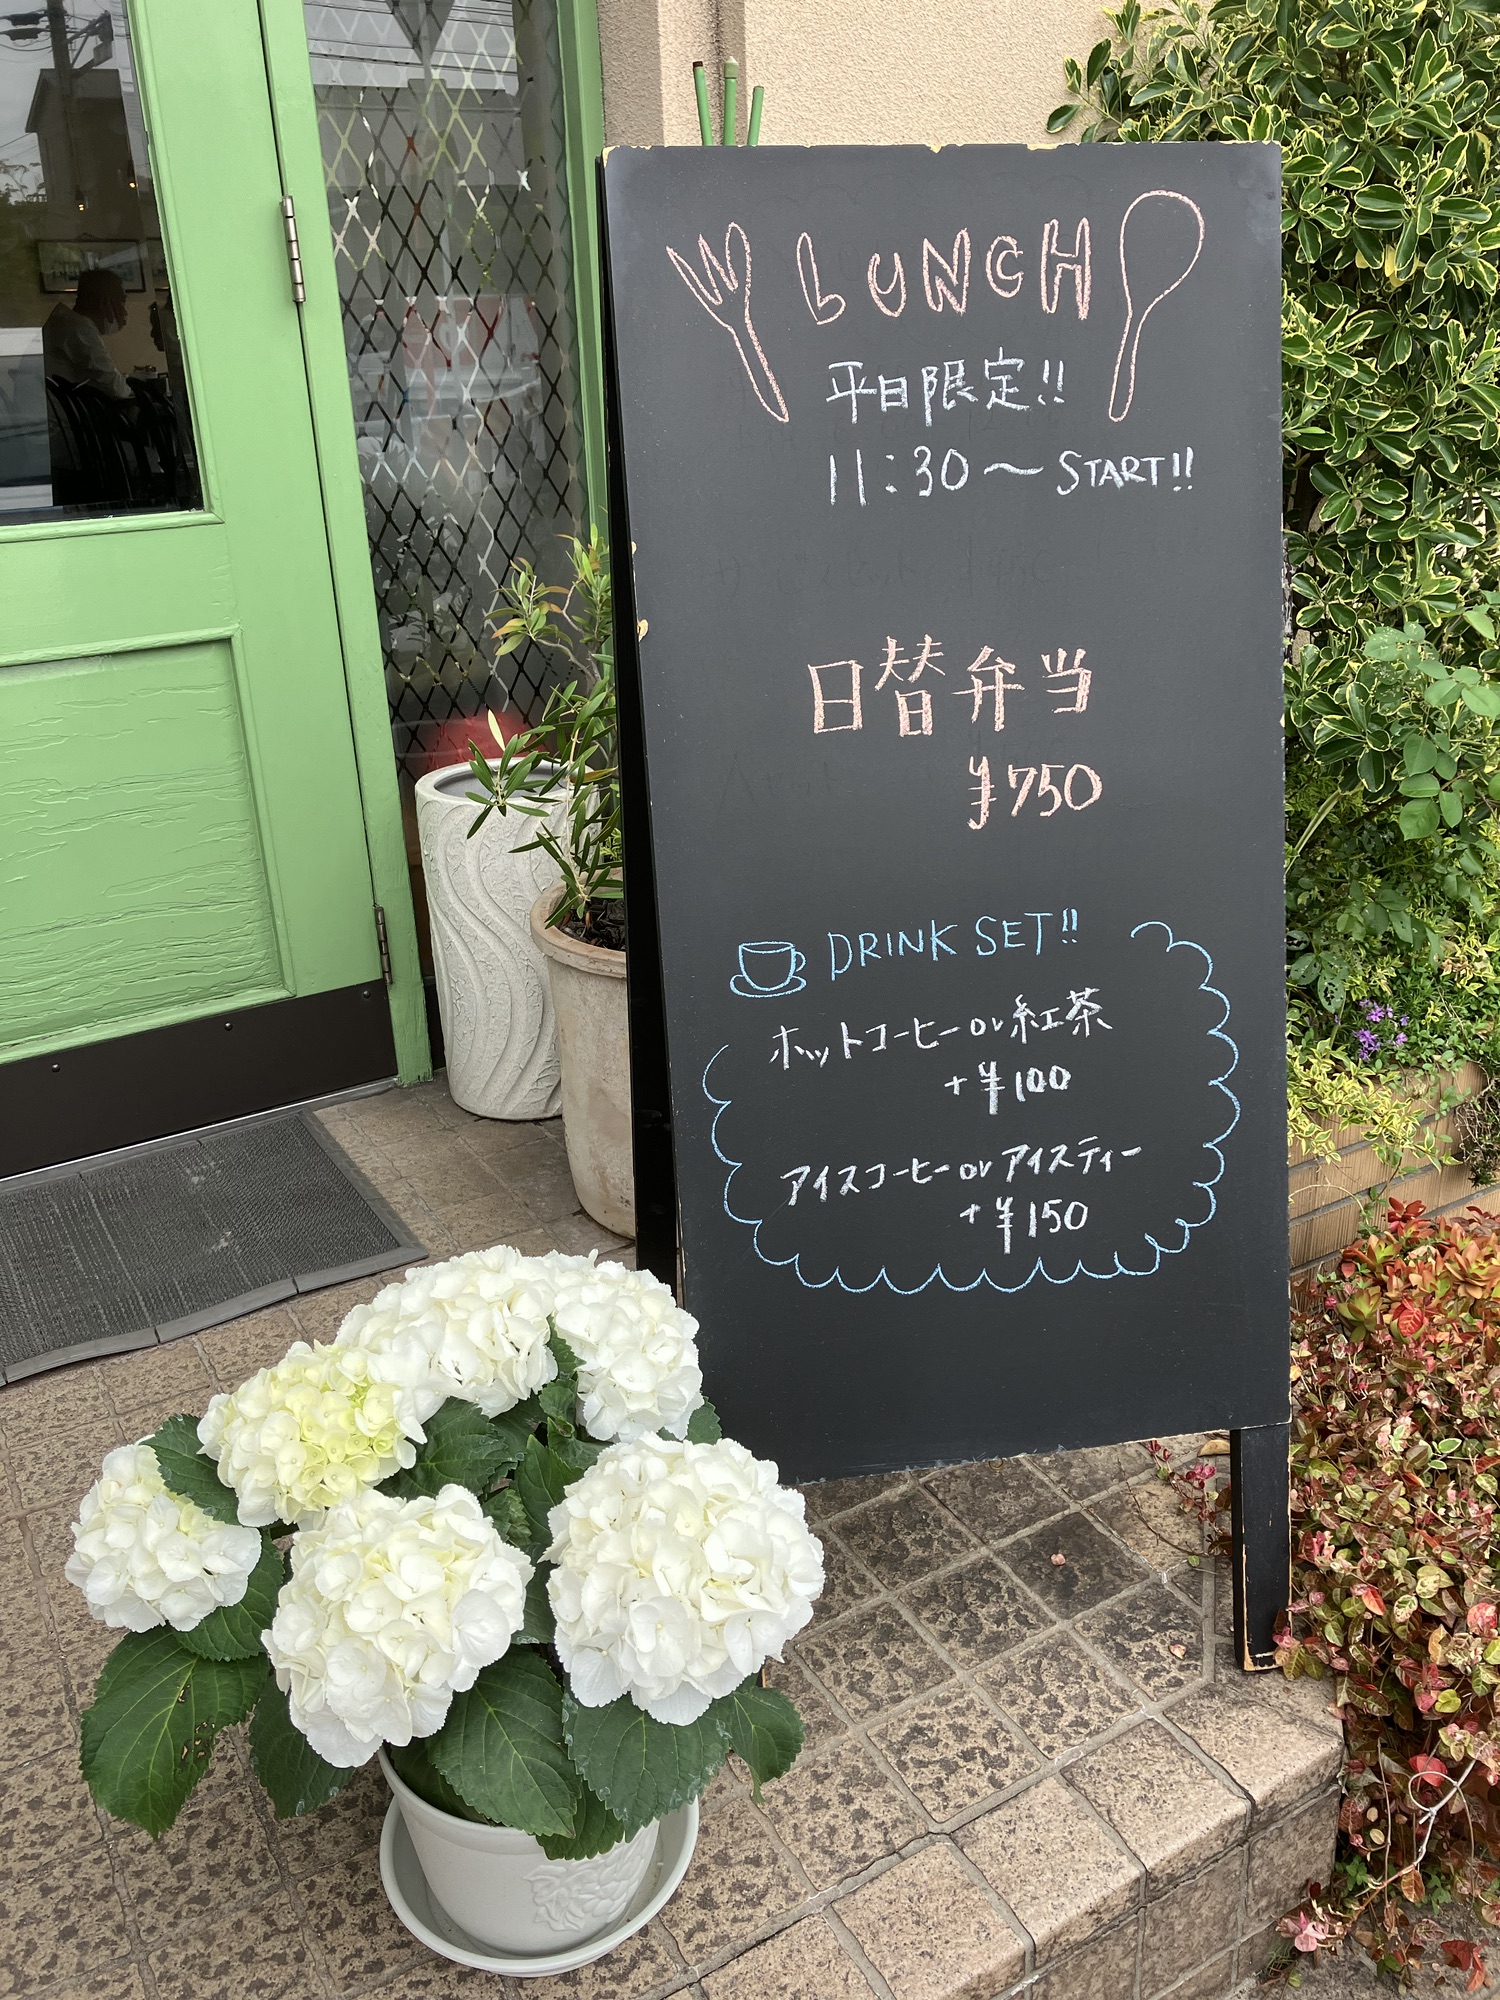 LUNCH
平日限定!!
11:30〜START!!
日替弁当
¥750
DRINK SET!!
ホットコーヒー or 紅茶
+¥100
アイスコーヒー or アイスティー
+¥150